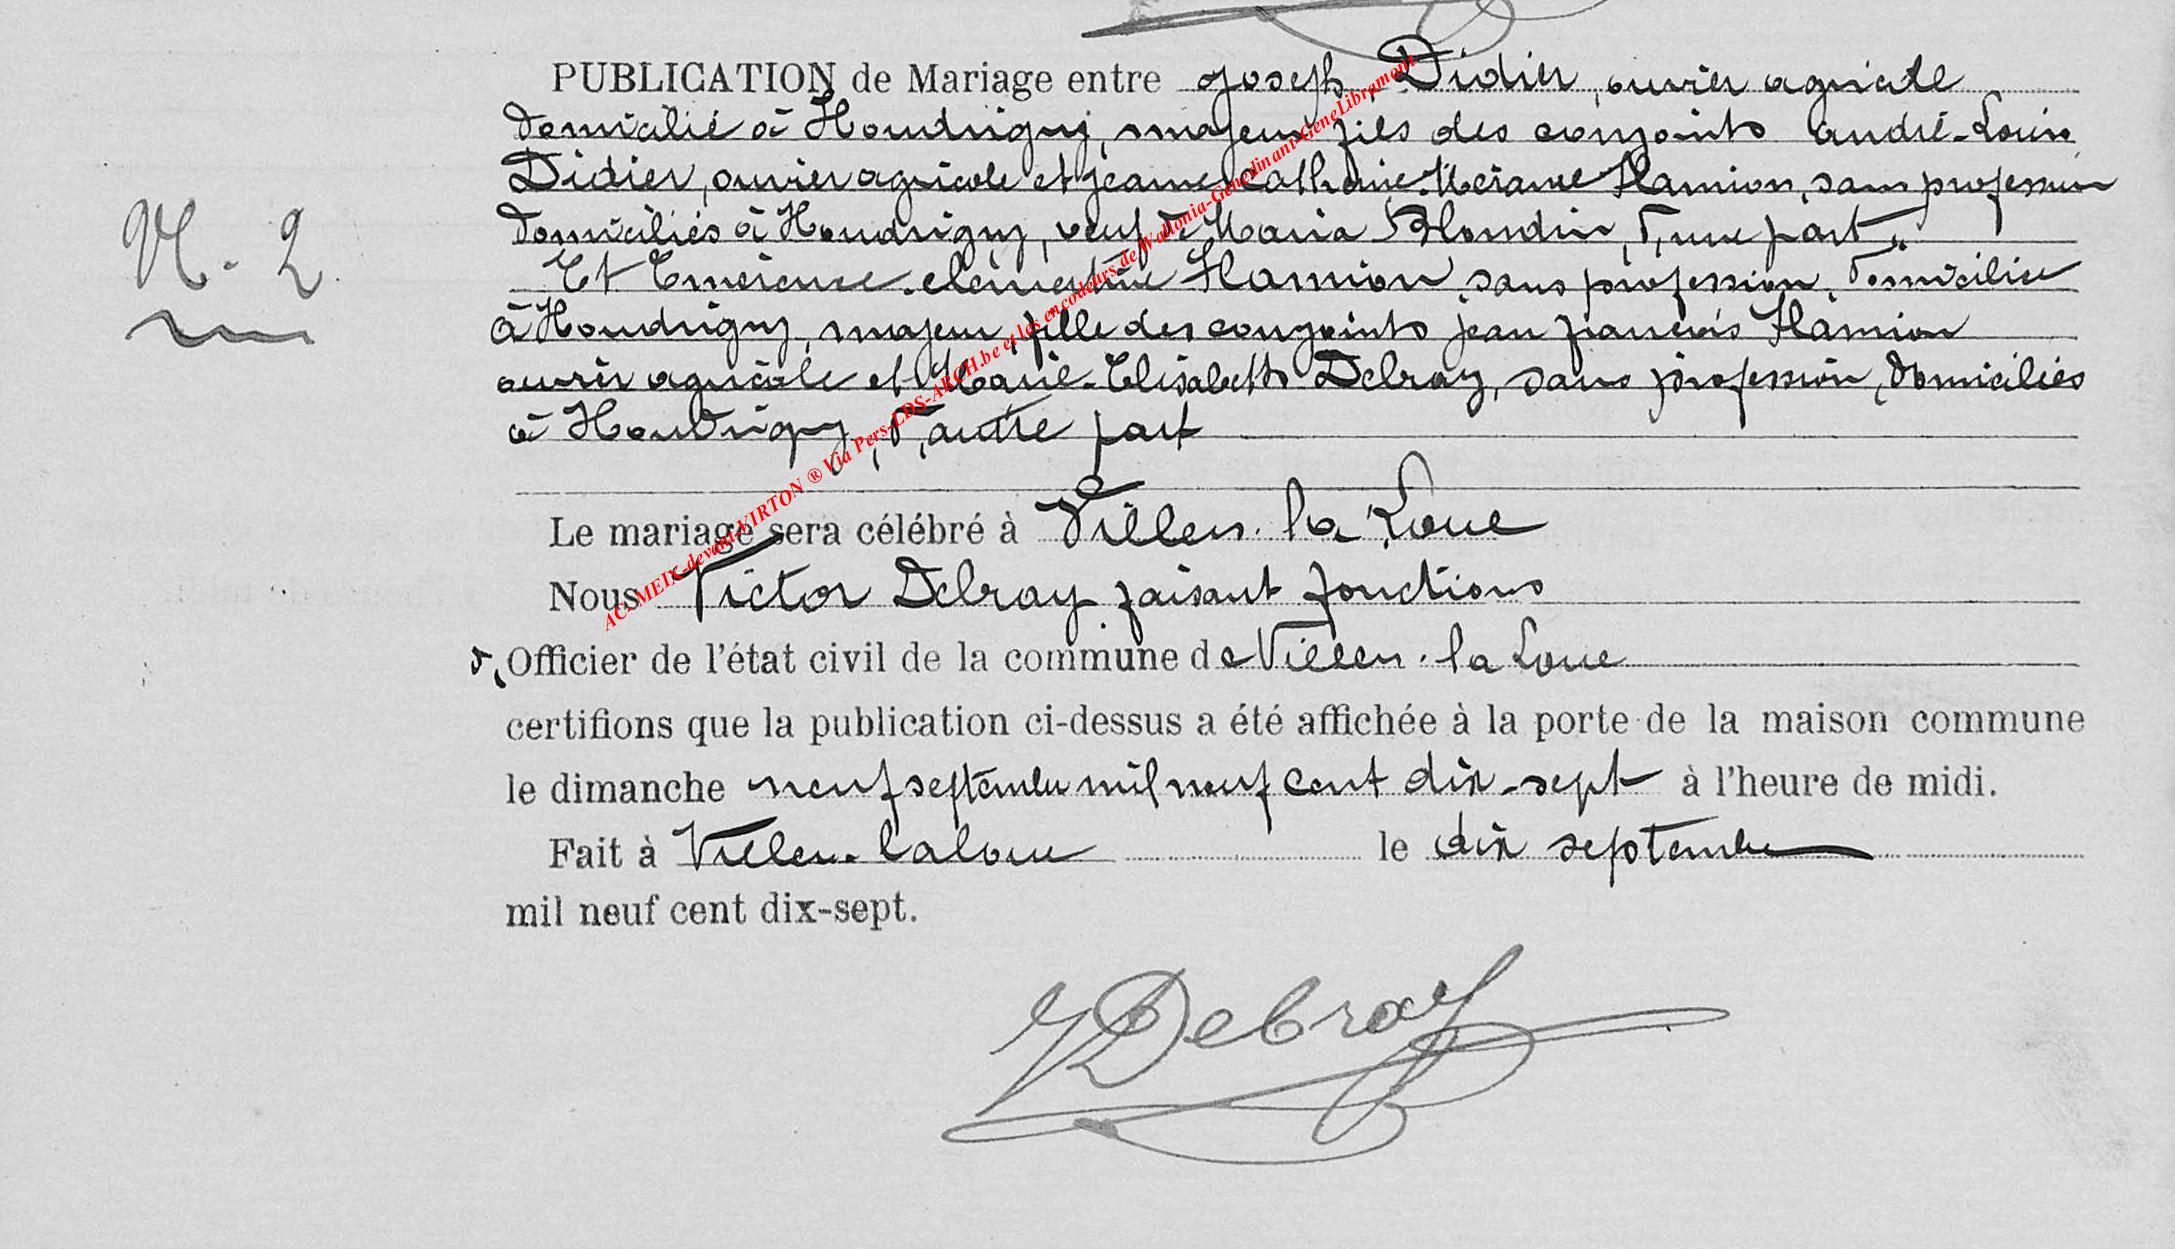 PUBLICATION de Mariage entre Joseph Didier, ouvrier agricole
domicilié à Houdrigny, majeur fils des conjoints André-Louis
Didier, ouvrier agricole et Jeanne Catherine Hamion, sans profession
domiciliés à Houdrigny, veuf de Maria Blondin, d'une part
N. 2
Et Emérence-Clémentine Hamion, sans profession, domiciliée
à Houdrigny, majeur, fille des conjoints Jean François Hamion
ouvrier agricole et Marie-Elisabeth Debray, sans profession, domiciliés
à Houdrigny, d'autre part
Le mariage sera célébré à Villers-la Loue
Nous Victor Debray faisant fonctions
d'Officier de l'état civil de la commune de Villers-la Loue
certifions que la publication ci-dessus a été affichée à la porte de la maison commune
le dimanche neuf septembre mil neuf cent dix-sept à l'heure de midi.
Fait à Villers-laloue le dix septembre
mil neuf cent dix-sept.
VDebray
AC-MEIX-devant-VIRTON ® Via Pers-LDS-ARCH.be et les encodeurs de Wallonia-Genedinant-GeneLibramont